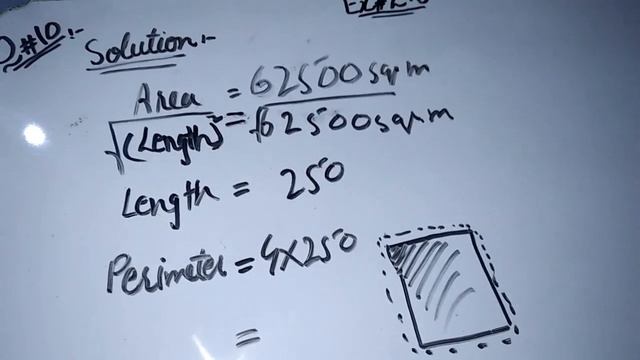 Q#10:-
Solution:-
Area = 62500 sqr m
√(Length)² = √62500 sqr m
Length = 250
Perimeter = 4×250
=